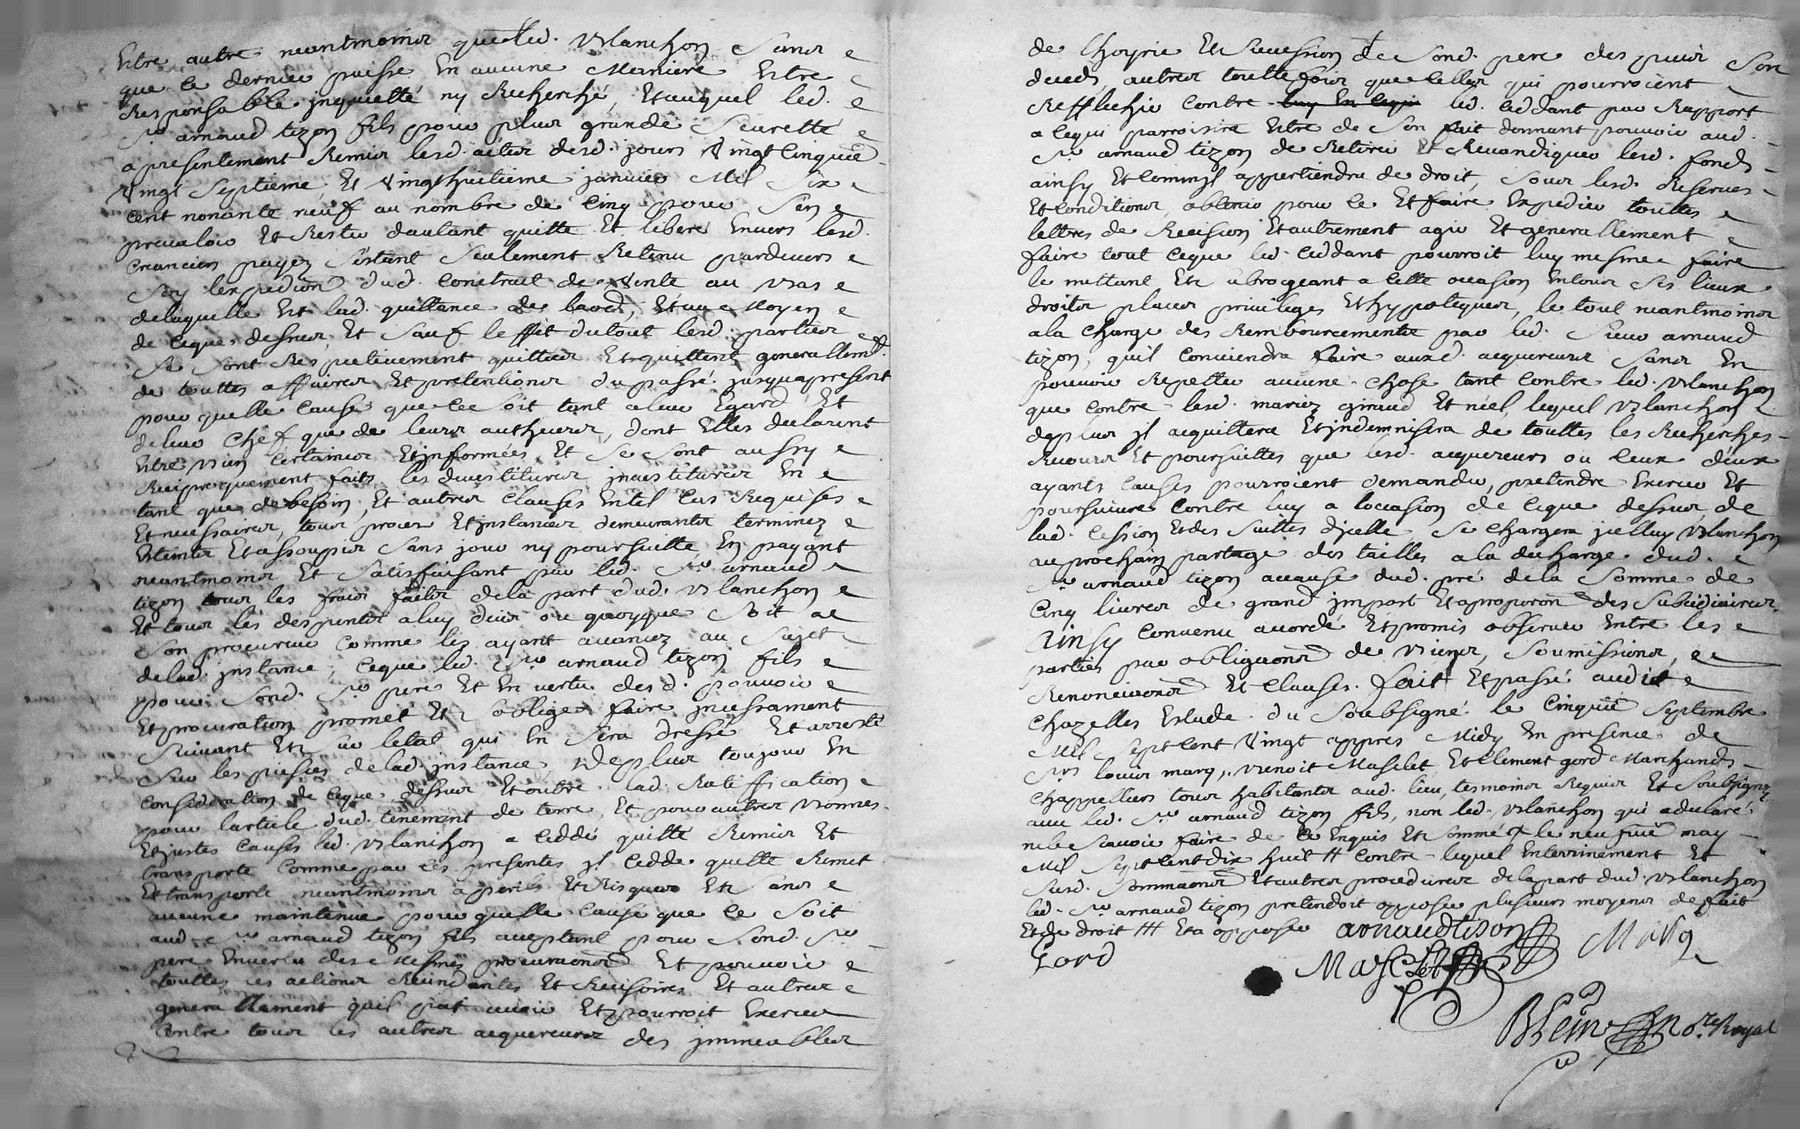 Estre autre neantmoins que led. Blanchon sans
que ce dernier puisse En aucune Maniere Estre
Responsable inquietté ny Recherché, Et auquel led.
Sr. arnaud tizon fils pour plus grande Seuretté
a presentement Remis lesd. actes desd. jours Vingt Cinquie.
Vingt Septieme, Et Vingt huitieme janvier Mil Six
Cent nonante neuf au nombre de Cinq pour S'en
prevaloir Et Rester dautant quitte Et liberé Envers lesd.
Creanciers payez S'estant Seulement Retenu pardevers
Soy lexpedion dud. Contract de Vente au bas
delaquelle Est lad. quittance de Et au Moyen
de Ceque dessus, Et Sauf leffet dutout lesd. parties
Se Sont Respectivement quittées Et quittent generallemt.
de touttes affaires Et pretentions du passé jusqua present
pour quelle Cause que Ce Soit tant aleur Egard Et
deleur Chef que de leurs autheurs, dont Elles declarent
Estre bien Certaines Et informées Et Se Sont aussy
Reciproquement faits les devestitures investitures En
tant que de besoin, Et autres Clauses En tel Cas Requises
Et necessaires, tous proces Et instances demeurants terminez
Esteints Et assoupis Sans jour ny poursuitte En payant
neantmoins Et Satisfaisant par led. Sr. arnaud
tizon tous les frais faits dela part dud. Blanchon
Et tous les despents aluy deus ou quoyque Soit a
Son procureur Comme les ayant avancez au Sujet
delad. instance, Ceque led. Sr. arnaud tizon fils
pour Sond. Sr. pere Et En vertu desd. pouvoir
Et procuration promet Et oblige faire incessament
Suivant Et letat qui En Sera dressé Et arresté
Sur les pieces delad. instance, deplus toujours En
Consideration de Ceque dessus Et outre lad. Ratiffication
pour larticle dud. tenement de terre, Et pour autres bonnes
Et justes Causes led. Blanchon a Ceddé quitté Remis Et
transporté Comme par Ces presentes il Cedde quitte Remet
Et transporte neantmoins a perils Et Risques Et Sans
aucune maintenue pour quelle Cause que Ce Soit
aud. Sr. arnaud tizon fils acceptant pour Sond. Sr.
pere Envertu des Mesmes procuraons. Et pouvoir
touttes Ses actions Recindantes Et Recisoires Et autres
generallement quil peut avoir Et pourroit Exercer
Contre tous les autres acquereurs des immeubles
de Et Succession de Sond. pere des puis Son
deced, autres touttefois que Celles qui pourroient
Reffléchir Contre led. Ceddant par Rapport
a Cequi parroistra Estre de Son fait donnant pouvoir aud.
Sr. arnaud tizon de Retirer Et Revandiquer lesd. fonds
ainsy Et Comme il appartiendra de droit, Sous lesd. Reserves
Et Conditions, obtenir pour Ce Et faire Expedier touttes
lettres de Recision Et autrement agir Et generallement
faire tout Ceque led. Ceddant pourroit luy mesme faire
le mettant Et Subrogeant a Cette occasion En tous Ses lieux
droits places privileges Et hypoteques, le tout neantmoins
ala Charge des Rembourcements par led. Sieur arnaud
tizon, quil Conviendra faire auxd. acquereurs Sans En
pouvoir Repetter aucune Chose tant Contre led. Blanchon
que Contre lesd. mariez giraud Et niel, lequel Blanchon
deplus il acquittera Et indemnisera de touttes les Recherches
Recours Et poursuittes que lesd. acquereurs ou Ceux deux
ayants Causes pourroient demander, pretendre Exercer Et
poursuivre Contre luy a loccasion de Ceque dessus, de
lad. Cession Et des Suittes dicelle. Se Chargera icelluy Blanchon
au prochain partage des tailles a la decharge dud.
Sr. arnaud tizon acause dud. pré dela Somme de
Cinq livres de grand impost Et aproporon. des Subcidiaires,
Ainsy Convenu accordé Et promis observer Entre les
parties par obligaons. de biens, Soumissions,
Renonciaons. Et Clauses. fait Et passé audit
Chazelles Estude du Soubsigné le Cinquie. Septembre
Mil Sept Cent Vingt appres Midy En presence de
Srs. louis marq, benoit Masclet Et Clement gord Marchands
Chappelliers tous habitants aud. lieu, tesmoins Requis Et Soubsignez
avec led. Sr. arnaud tizon fils, non led. Blanchon qui a declaré
ne le Scavoir faire de Ce Enquis Et Sommé # le neufvie. may
Mil Sept Cent dix huit ## Contre lequel Enterrinement Et
Susd. Sommaons. Et autres procedures de lapart dud. Blanchon
led. Sr. arnaud tizon pretendoit opposer plusieurs moyens de fait
Et de droit ### Et a opposer arnaudtison Marq
Gord
Masclet
Blein no.re Royal